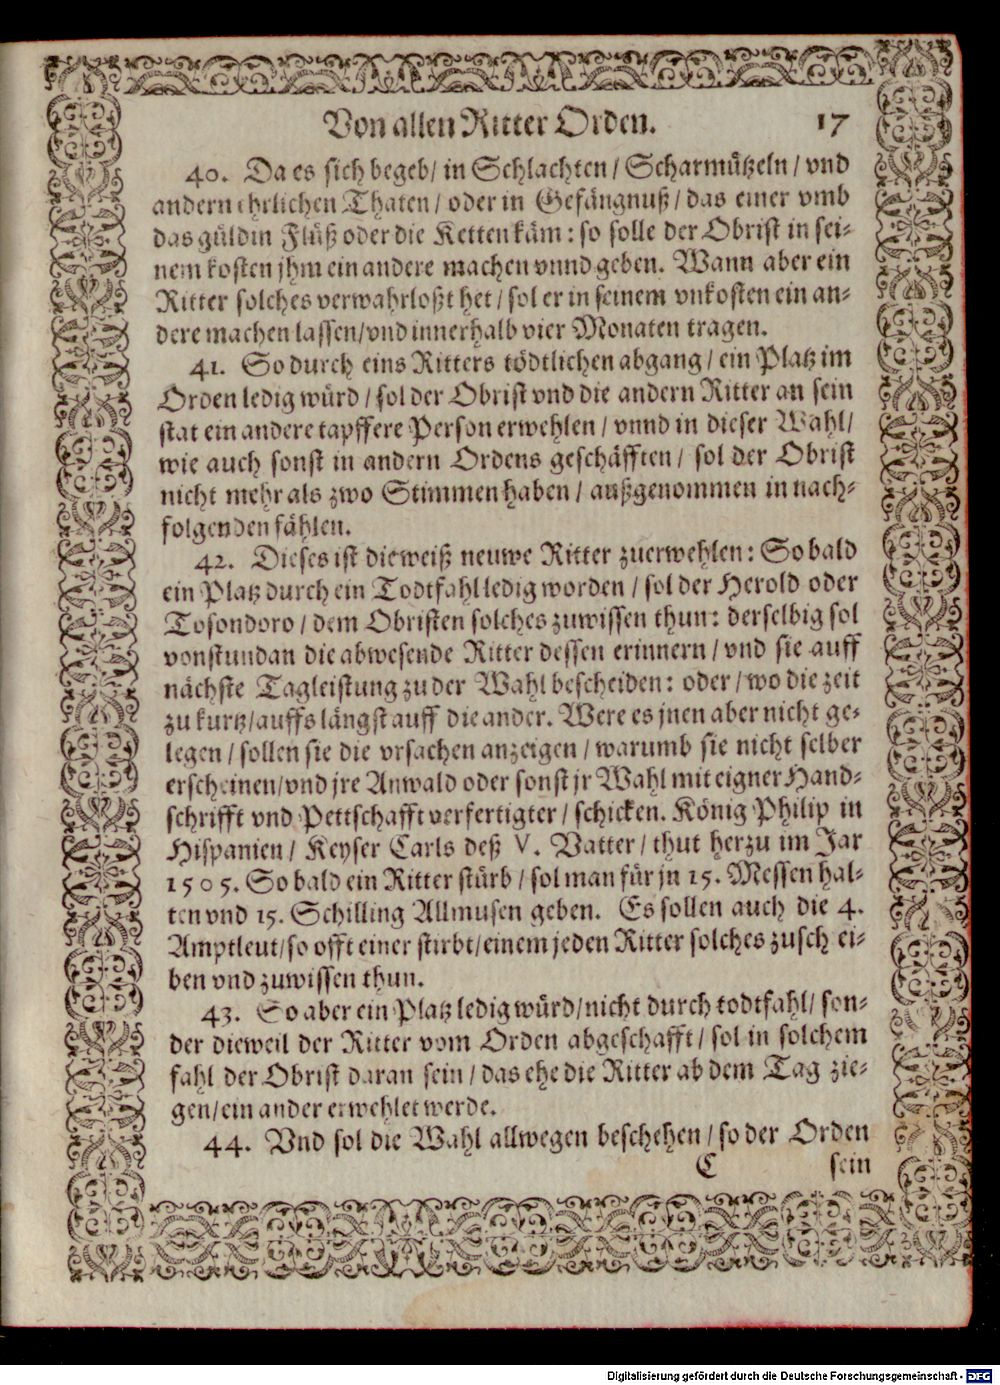 Von allen Ritter Orden. 17
40. Da es sich begeb/ in Schlachten/ Scharmützeln/ vnd
andern ehrlichen Thaten/ oder in Gefängnuß/ das einer vmb
das güldin Flüß oder die Ketten käm: so solle der Obrist in sei-
nem kosten jhm ein andere machen vnnd geben. Wann aber ein
Ritter solches verwahrloßt het/ sol er in seinem vnkosten ein an-
dere machen lassen/ vnd innerhalb vier Monaten tragen.
41. So durch eins Ritters tödtlichen abgang/ ein Platz im
Orden ledig würd/ sol der Obrist vnd die andern Ritter an sein
stat ein andere tapffere Person erwehlen/ vnnd in dieser Wahl/
wie auch sonst in andern Ordens geschäfften/ sol der Obrist
nicht mehr als zwo Stimmen haben/ außgenommen in nach-
folgenden fählen.
42. Dieses ist die weiß neuwe Ritter zuerwehlen: So bald
ein Platz durch ein Todtfahl ledig worden/ sol der Herold oder
Tosondoro/ dem Obristen solches zuwissen thun: derselbig sol
vonstundan die abwesende Ritter dessen erinnern/ vnd sie auff
nächste Tagleistung zu der Wahl bescheiden: oder/ wo die zeit
zu kurtz/ auffs längst auff die ander. Were es jnen aber nicht ge-
legen/ sollen sie die vrsachen anzeigen/ warumb sie nicht selber
erscheinen/ vnd jre Anwald oder sonst jr Wahl mit eigner Hand-
schrifft vnd Pettschafft verfertigter/ schicken. König Philip in
Hispanien/ Keyser Carls deß V. Vatter/ thut herzu im Jar
1505. So bald ein Ritter stürb/ sol man für jn 15. Messen hal-
ten vnd 15. Schilling Allmusen geben. Es sollen auch die 4.
Amptleut/ so offt einer stirbt/ einem jeden Ritter solches zusch ei-
ben vnd zuwissen thun.
43. So aber ein Platz ledig würd/ nicht durch todtfahl/ son-
der dieweil der Ritter vom Orden abgeschafft/ sol in solchem
fahl der Obrist daran sein/ das ehe die Ritter ab dem Tag zie-
gen/ ein ander erwehlet werde.
44. Vnd sol die Wahl allwegen beschehen/ so der Orden
C sein
Digitalisierung gefördert durch die Deutsche Forschungsgemeinschaft - DFG